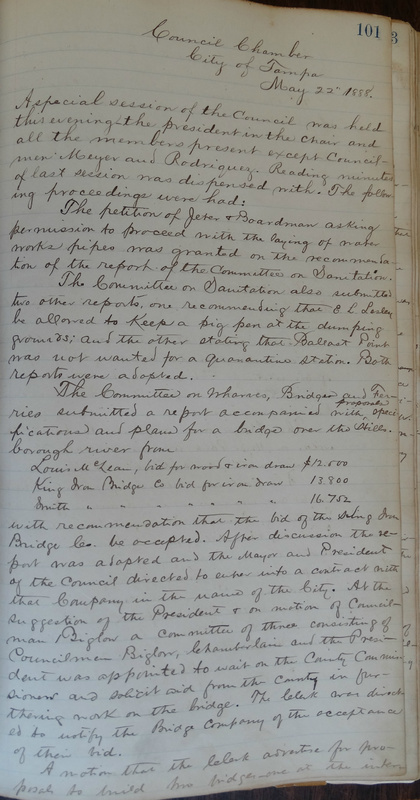 101
3
Council Chamber
City of Tampa
May 22" 1888.
A special session of the Council was held
this evening the president in the chair and
all the members present except Council-
men Meyer and Rodriguez. Reading minutes
of last session was dispensed with. The follow-
ing proceedings were had:
The petition of Jeter & Boardman asking
permission to proceed with the laying of water
works pipes was granted on the recommenda-
tion of the report of the Committee on Sanitation.
The Committee on Sanitation also submitted
two other reports, one recommending that E L Lesley
be allowed to keep a pig pen at the dumping
grounds; and the other stating that Ballast Point
was not wanted for a Quarantine station. Both
reports were adopted.
The Committee on Wharves, Bridges and Fer-
ries submitted a report accompanied with proposals speci-
fications and plans for a bridge over the Hills-
borough river from
Louis McLean, bid for wood & iron draw $12.000
King Iron Bridge Co bid for iron draw 13.800
Smith " " " " " " 16.752
with recommendation that the bid of the King Iron
Bridge Co. be accepted. After discussion the re-
port was adopted and the Mayor and President
of the Council directed to enter into a contract with
that Company in the name of the City. At the
suggestion of the President & on motion of Council-
man Biglow a committee of three consisting of
Councilmen Biglow, Chamberlain and the Presi-
dent was appointed to wait on the County Commis-
sioners and solicit aid from the county in fur-
thering work on the bridge. The Clerk was direct-
ed to notify the Bridge Company of the acceptance
of their bid.
A motion that the Clerk advertise for pro-
posals to build two bridges one at the